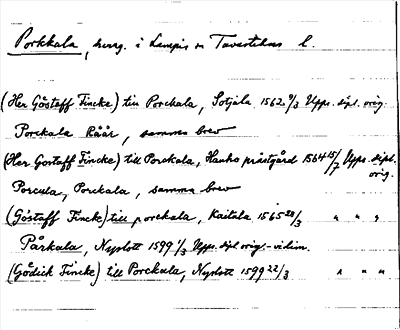 Porkkala, herrg. i Lampis sn Tavastehus l.
(Her Göstaff Fincke) till Porckala, Sotjala 1562 9/3 Upps. dipl. orig.
Porckala Råår, samma brev
(Her Gostaff Fincke) till Porckala, Hauho prästgård 1564 15/7 Upps. dipl. orig.
Porcula, Porckala, samma brev
(Göstaff Fincke) till porckala, Kaitula 1565 28/3 " " "
Pårkala, Nyslott 1599 1/3 Upps. dipl. orig.-vidim.
(Gödick Fincke) till Porckala, Nyslott 1599 22/3 " " "